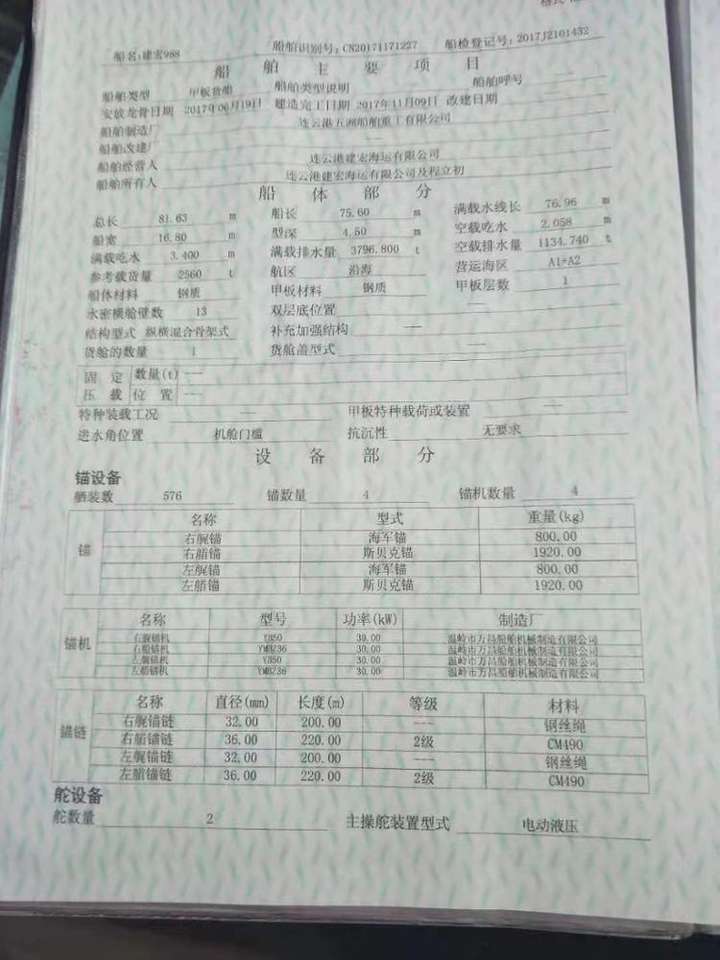 船名:建宏988 船舶识别号:CN20171171227 船检登记号:2017J2101432
船 舶 主 要 项 目
船舶类型 甲板货船 船舶类型说明 船舶呼号 —
安放龙骨日期 2017年06月19日 建造完工日期 2017年11月09日 改建日期
船舶制造厂 连云港五洲船舶重工有限公司
船舶改建厂 —
船舶经营人 连云港建宏海运有限公司
船舶所有人 连云港建宏海运有限公司及程立初
船 体 部 分
总长 81.63 m 船长 75.60 m 满载水线长 76.96 m
船宽 16.80 m 型深 4.50 m 空载吃水 2.058 m
满载吃水 3.400 m 满载排水量 3796.800 t 空载排水量 1134.740 t
参考载货量 2560 t 航区 沿海 营运海区 A1+A2
船体材料 钢质 甲板材料 钢质 甲板层数 1
水密横舱壁数 13 双层底位置
结构型式 纵横混合骨架式 补充加强结构 —
货舱的数量 1 货舱盖型式 —
固 定 数量(t) —
压 载 位 置 —
特种装载工况 — 甲板特种载荷或装置 —
进水角位置 机舱门槛 抗沉性 无要求
设 备 部 分
锚设备
舾装数 576 锚数量 4 锚机数量 4
名称 型式 重量(kg)
锚
右艉锚 海军锚 800.00
右艏锚 斯贝克锚 1920.00
左艉锚 海军锚 800.00
左艏锚 斯贝克锚 1920.00
名称 型号 功率(kW) 制造厂
锚机
右艉锚机 YJ50 30.00 温岭市万昌船舶机械制造有限公司
右艏锚机 YMBZ36 30.00 温岭市万昌船舶机械制造有限公司
左艉锚机 YJ50 30.00 温岭市万昌船舶机械制造有限公司
左艏锚机 YMBZ36 30.00 温岭市万昌船舶机械制造有限公司
名称 直径(mm) 长度(m) 等级 材料
锚链
右艉锚链 32.00 200.00 --- 钢丝绳
右艏锚链 36.00 220.00 2级 CM490
左艉锚链 32.00 200.00 --- 钢丝绳
左艏锚链 36.00 220.00 2级 CM490
舵设备
舵数量 2 主操舵装置型式 电动液压